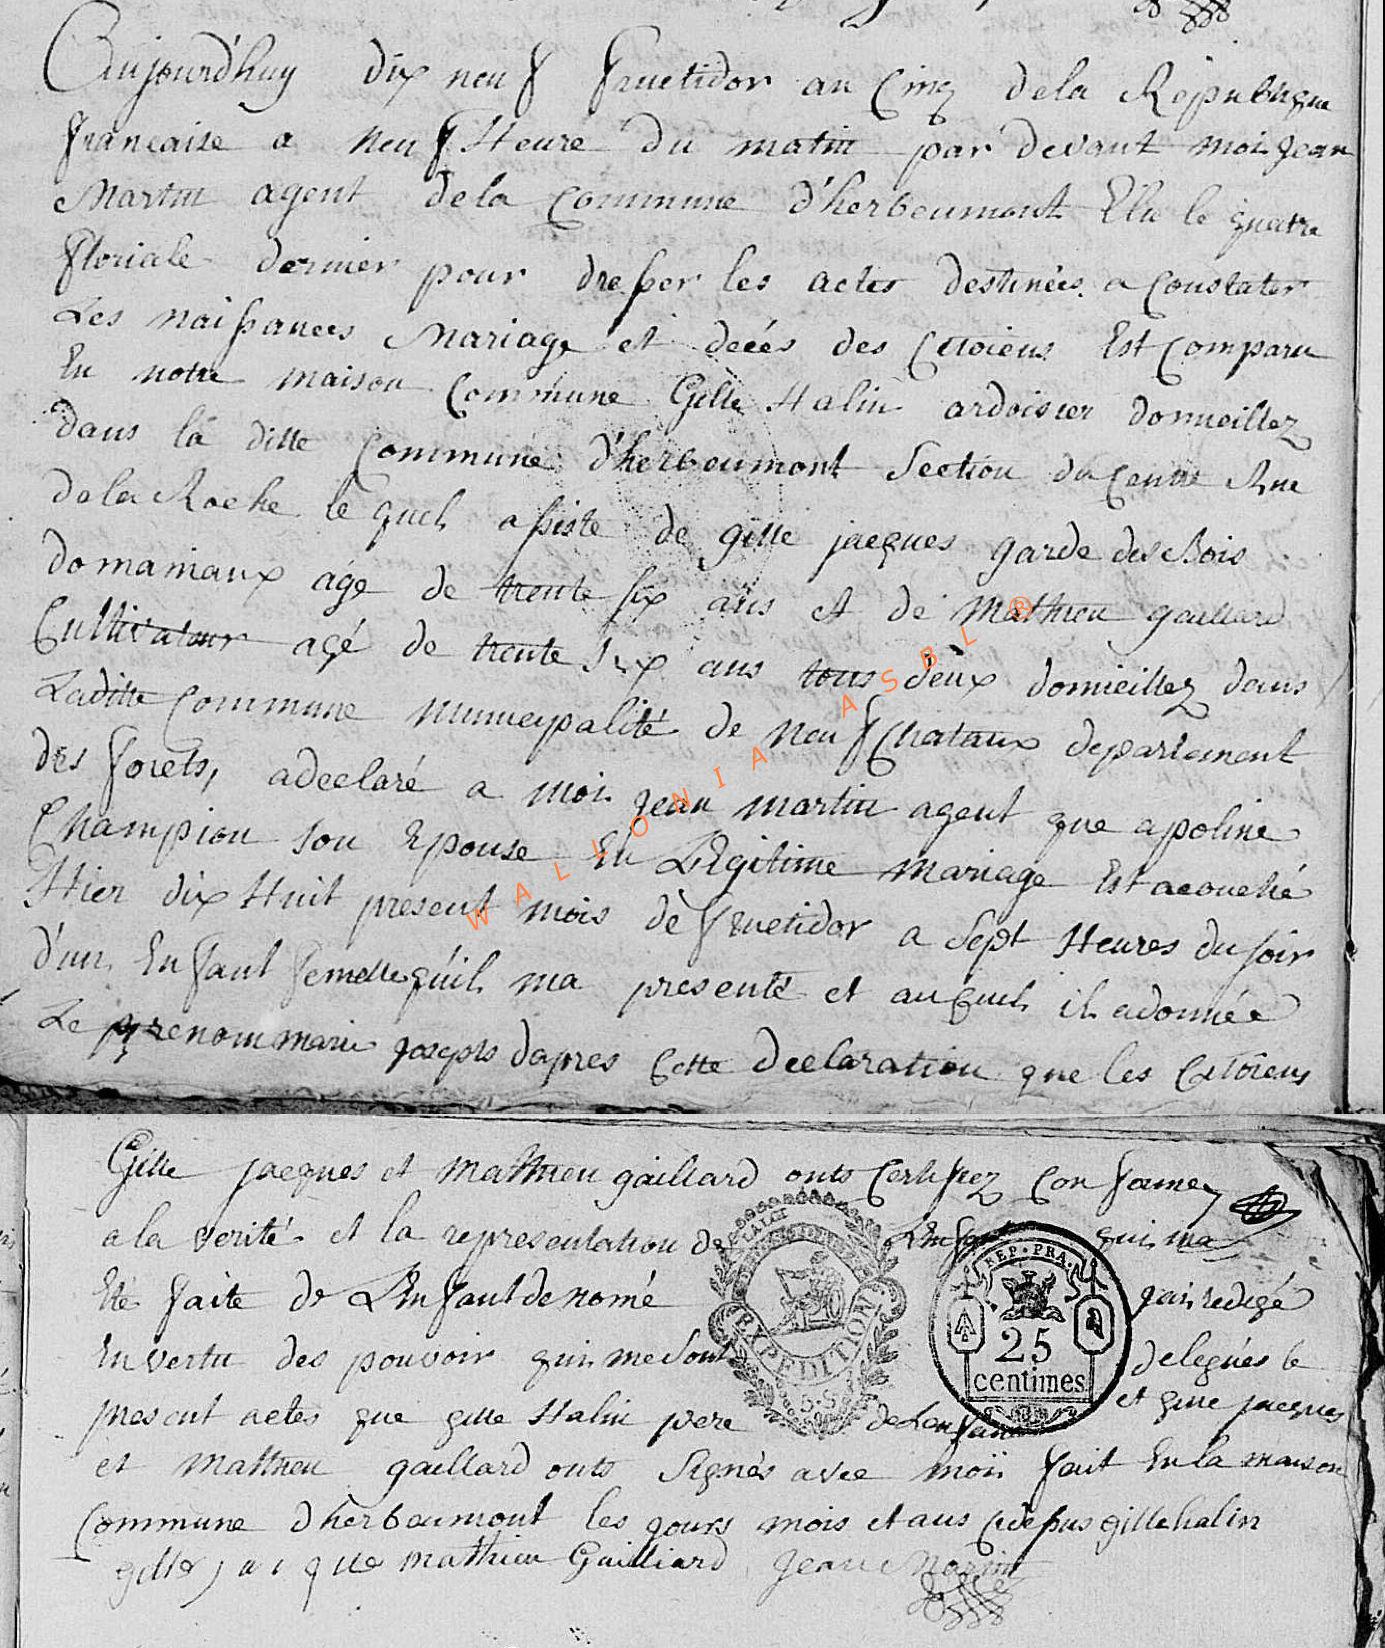 Aujourd'huy dix neuf fructidor an Cinq dela Republique
francaise a neuf Heure du matin par devant moi jean
Martin agent dela Commune d'herbeumont Elu le quatre
floriale dernier pour dresser les actes destinées a Constater
Les naissances Mariage et decés des Citoiens Est Comparu
En notre maison Commune Gille Halin ardoisier domicillez
dans la ditte Commune d'herbeumont Section du Centre Rue
dela Roche le quel assiste de gille jacques garde des Bois
domaniaux agé de trente six ans et de Mathieu gaillard
Cultivateur agé de trente six ans tous deux domicillez dans
Laditte Commune Municipalité de neufchataux departement
des forets, a declaré a moi jean martin agent que apoline
Champion son Epouse En Legitime Mariage Est acouché
Hier dix Huit present mois de fructidor a Sept Heures du soir
d'un Enfant femelle quil ma presenté et auquel il adonnée
Le prenom marie josephs dapres Cette declaration que les Citoiens
WALLONIA ASBL ®
Gille jacques et mathieu gaillard onts Certifiez Conforme
a la verité et la representation de Lenfant qui ma
Eté faite de L'Enfant denomé jai redigé
En vertu des pouvoir qui me sont delegués le
present actes que gille Halin pere de Lenfant et gille jacques
et mathieu gaillard onts Signés avec moi fait En la maison
Commune dherbeumont les jours mois et ans cidessus gille halin
gille jacque mathieu Gailliard jean Martin
EXPEDITION
REP. FRA.
25
centimes